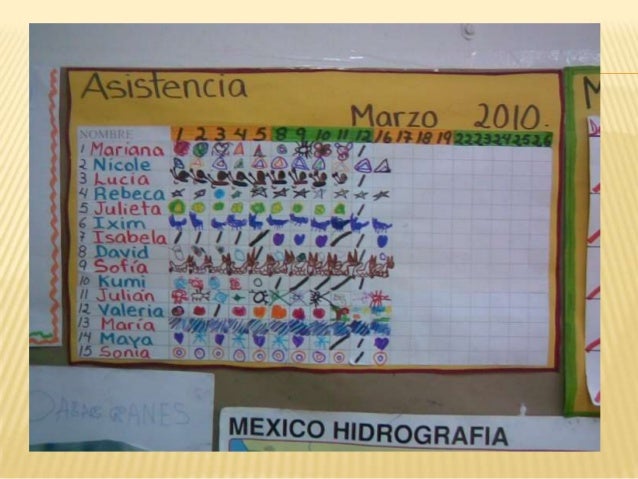 Asistencia
Marzo 2010.
NOMBRE 1 2 3 4 5 8 9 10 11 12 16 17 18 19 22 23 24 25 26
1 Mariana
2 Nicole
3 Lucia
4 Rebeca
5 Julieta
6 Ixim
7 Isabela
8 David
9 Sofía
10 Kumi
11 Julián
12 Valeria
13 María
14 Maya
15 Sonia
M
MEXICO HIDROGRAFIA